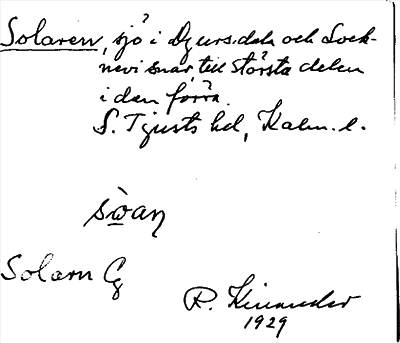 Solaren, sjö i Djursdala och Lock-
nevi snar, till största delen
i den förra.
S. Tjusts hd, Kalm. l.
sòan
Solarn Cg
R. Kinander
1929